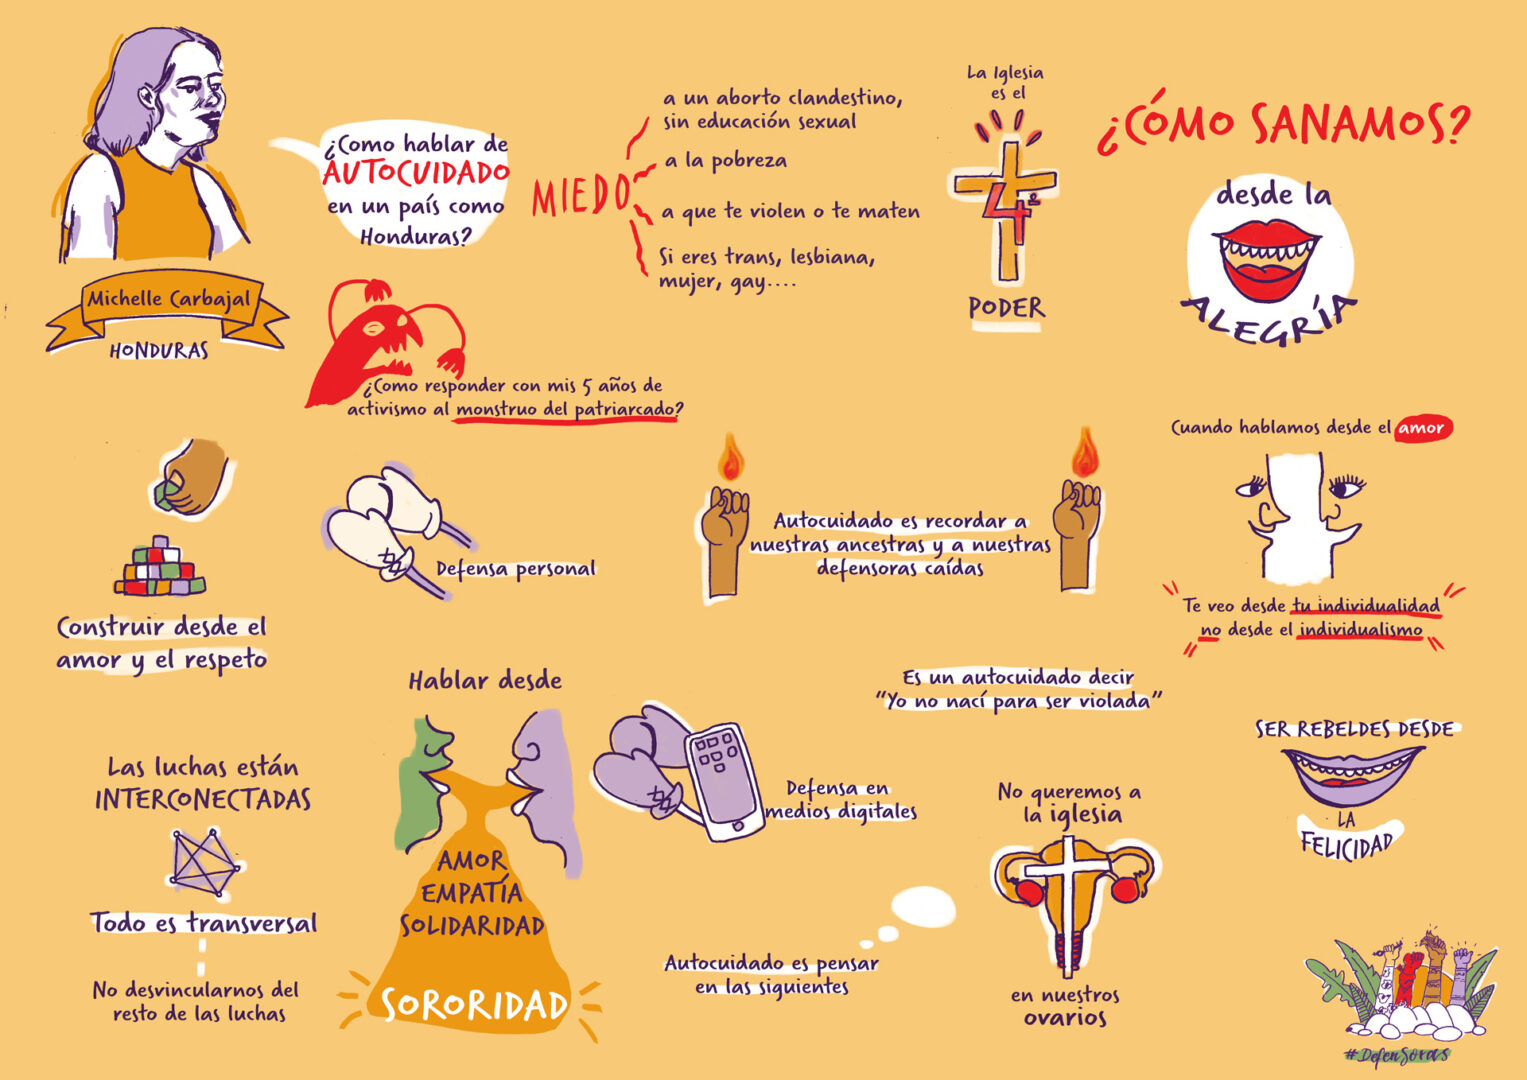 Michelle Carbajal
HONDURAS
¿Como hablar de
AUTOCUIDADO
en un país como
Honduras?
MIEDO
a un aborto clandestino,
sin educación sexual
a la pobreza
a que te violen o te maten
Si eres trans, lesbiana,
mujer, gay....
La Iglesia
es el
4º
PODER
¿CÓMO SANAMOS?
desde la
ALEGRÍA
¿Como responder con mis 5 años de
activismo al monstruo del patriarcado?
Construir desde el
amor y el respeto
Defensa personal
Autocuidado es recordar a
nuestras ancestras y a nuestras
defensoras caídas
Cuando hablamos desde el amor
Te veo desde tu individualidad
no desde el individualismo
Las luchas están
INTERCONECTADAS
Todo es transversal
No desvincularnos del
resto de las luchas
Hablar desde
AMOR
EMPATÍA
SOLIDARIDAD
SORORIDAD
Defensa en
medios digitales
Es un autocuidado decir
"Yo no nací para ser violada"
Autocuidado es pensar
en las siguientes
No queremos a
la iglesia
en nuestros
ovarios
SER REBELDES DESDE
LA
FELICIDAD
#Defensoras